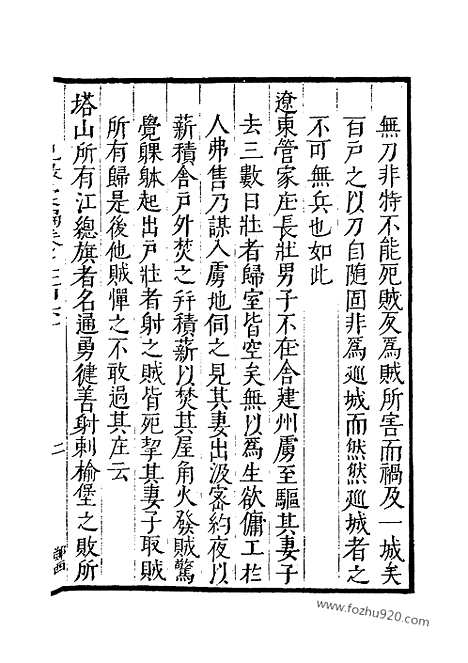 無刀非特不能死賊反為賊所害而禍及一城矣
百戶之以刀自隨固非為廵城而然然廵城者之
不可無兵也如此
遼東管家庄長壯男子不在舍建州虜至驅其妻子
去三數日壯者歸室皆空矣無以為生欲傭工於
人弗售乃謀入虜地伺之見其妻出汲密約夜以
薪積舍戶外焚之并積薪以焚其屋角火發賊驚
覺躶躰起出戶壯者射之賊皆死挈其妻子取賊
所有歸是後他賊憚之不敢過其庄云
塔山所有江總旗者名通勇徤善射剌榆堡之敗所
二
www.fozhu920.com